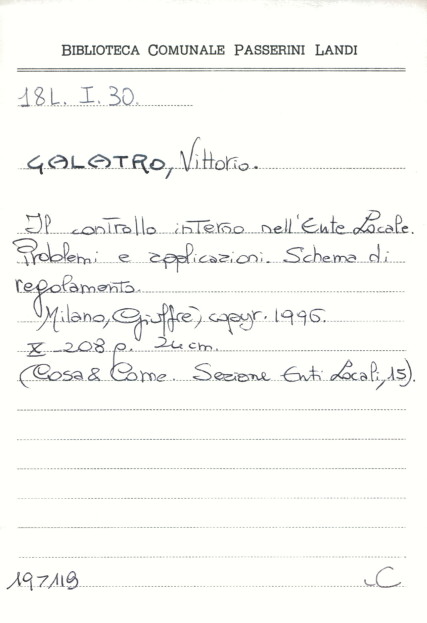 BIBLIOTECA COMUNALE PASSERINI LANDI
18L. I. 30.
GALATRO, Vittorio.
Il controllo interno nell'Ente Locale.
Problemi e applicazioni. Schema di
regolamento.
Milano, Giuffrè, copyr. 1996.
X 208 p. 24 cm.
(Cosa & Come. Sezione Enti Locali, 15).
197119 C